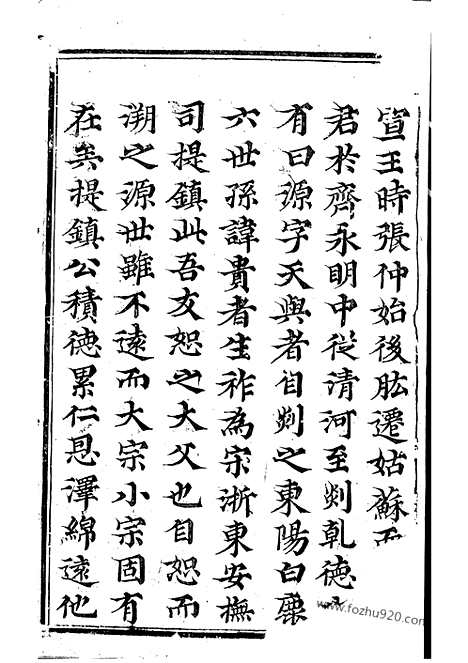 宣王時張仲始後肱遷姑蘇
君於齊永明中從清河至剡乾德
有曰源字天與者自剡之東陽白鹿
六世孫諱貴者生祚為宗浙東安撫
司提鎮此吾友恕之大父也自恕而
溯之源世雖不遠而大宗小宗固有
在矣提鎮公積德累仁恩澤綿遠他
https://www.fozhu920.com/